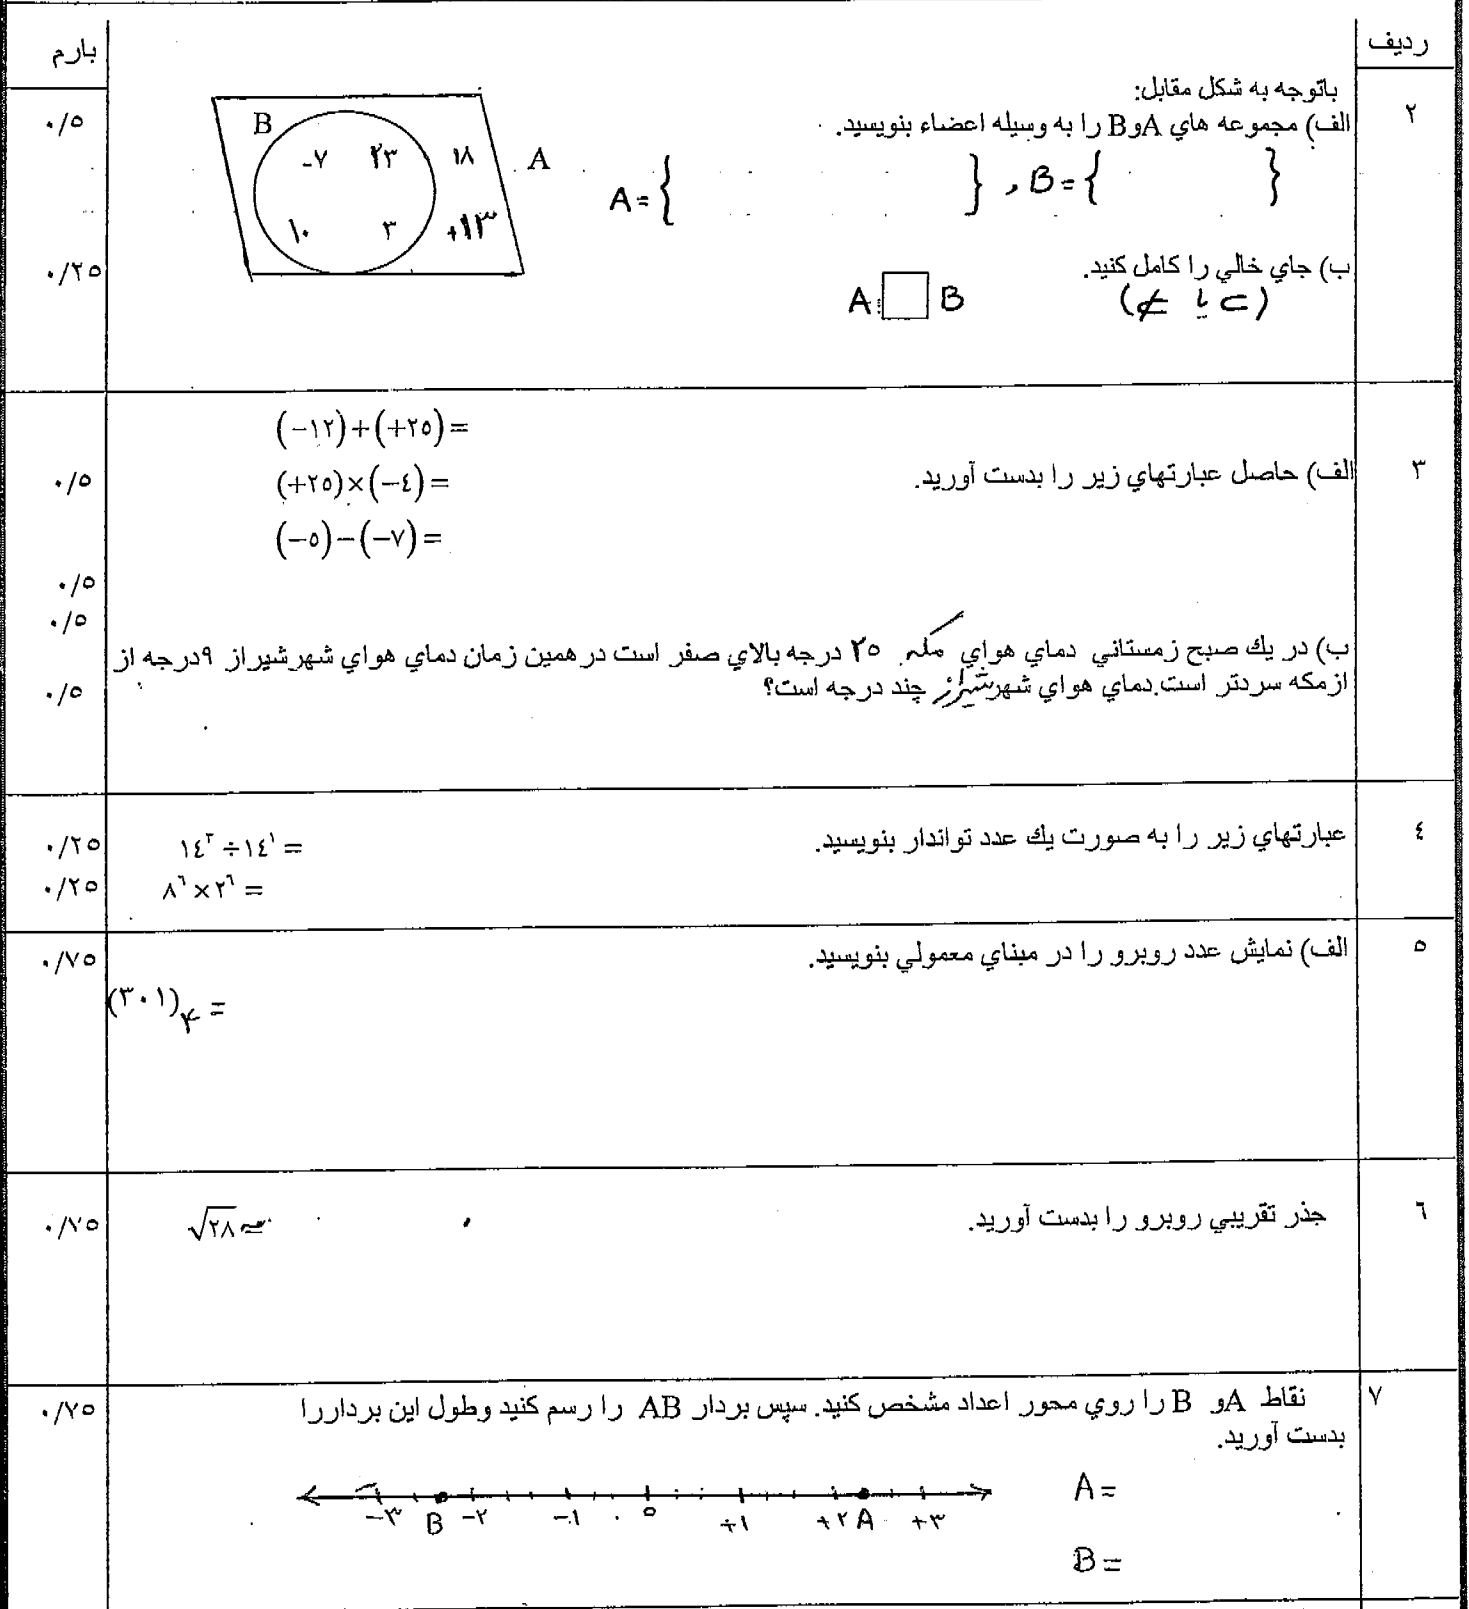 ردیف
بارم
۲
باتوجه به شکل مقابل:
الف) مجموعه هاي AوB را به وسیله اعضاء بنویسید.
۰/۵
A={ } , B={ }
B
-۷ ۲۳ ۱۸ A
۱۰ ۳ +۱۳
ب) جاي خالي را کامل کنید.
۰/۲۵
(⊂ یا ⊄)
A □ B
۳
الف) حاصل عبارتهاي زیر را بدست آورید.
(-۱۲)+(+۲۵)=
(+۲۵)×(-٤)=
(-۵)-(-۷)=
۰/۵
۰/۵
۰/۵
ب) در يك صبح زمستاني دماي هواي مکه ۲۵ درجه بالاي صفر است در همین زمان دماي هواي شهرشیراز ۹درجه از
ازمکه سردتر است.دماي هواي شهرشیراز چند درجه است؟
۰/۵
٤
عبارتهاي زیر را به صورت يك عدد تواندار بنویسید.
۱٤³ ÷ ۱٤¹ =
۰/۲۵
۸⁶ × ۲⁶ =
۰/۲۵
۵
الف) نمایش عدد روبرو را در مبناي معمولي بنویسید.
۰/۷۵
(۳۰۱)₄ =
٦
جذر تقریبي روبرو را بدست آورید.
√۲۸ ≃
۰/۷۵
۷
نقاط Aو B را روي محور اعداد مشخص کنید. سپس بردار AB را رسم کنید وطول این بردارRا
بدست آورید.
۰/۷۵
A=
-۳ B -۲ -۱ ۰ +۱ +۲ A +۳
B=